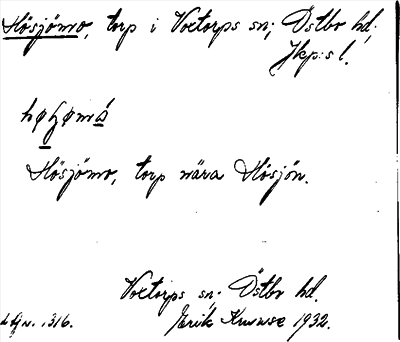 Hösjömo, torp i Voxtorps sn; Östbo hd;
Jkp:s l.
Hösjömo, torp nära Hösjön.
Voxtorps sn. Östbo hd.
Erik Kruuse 1932.